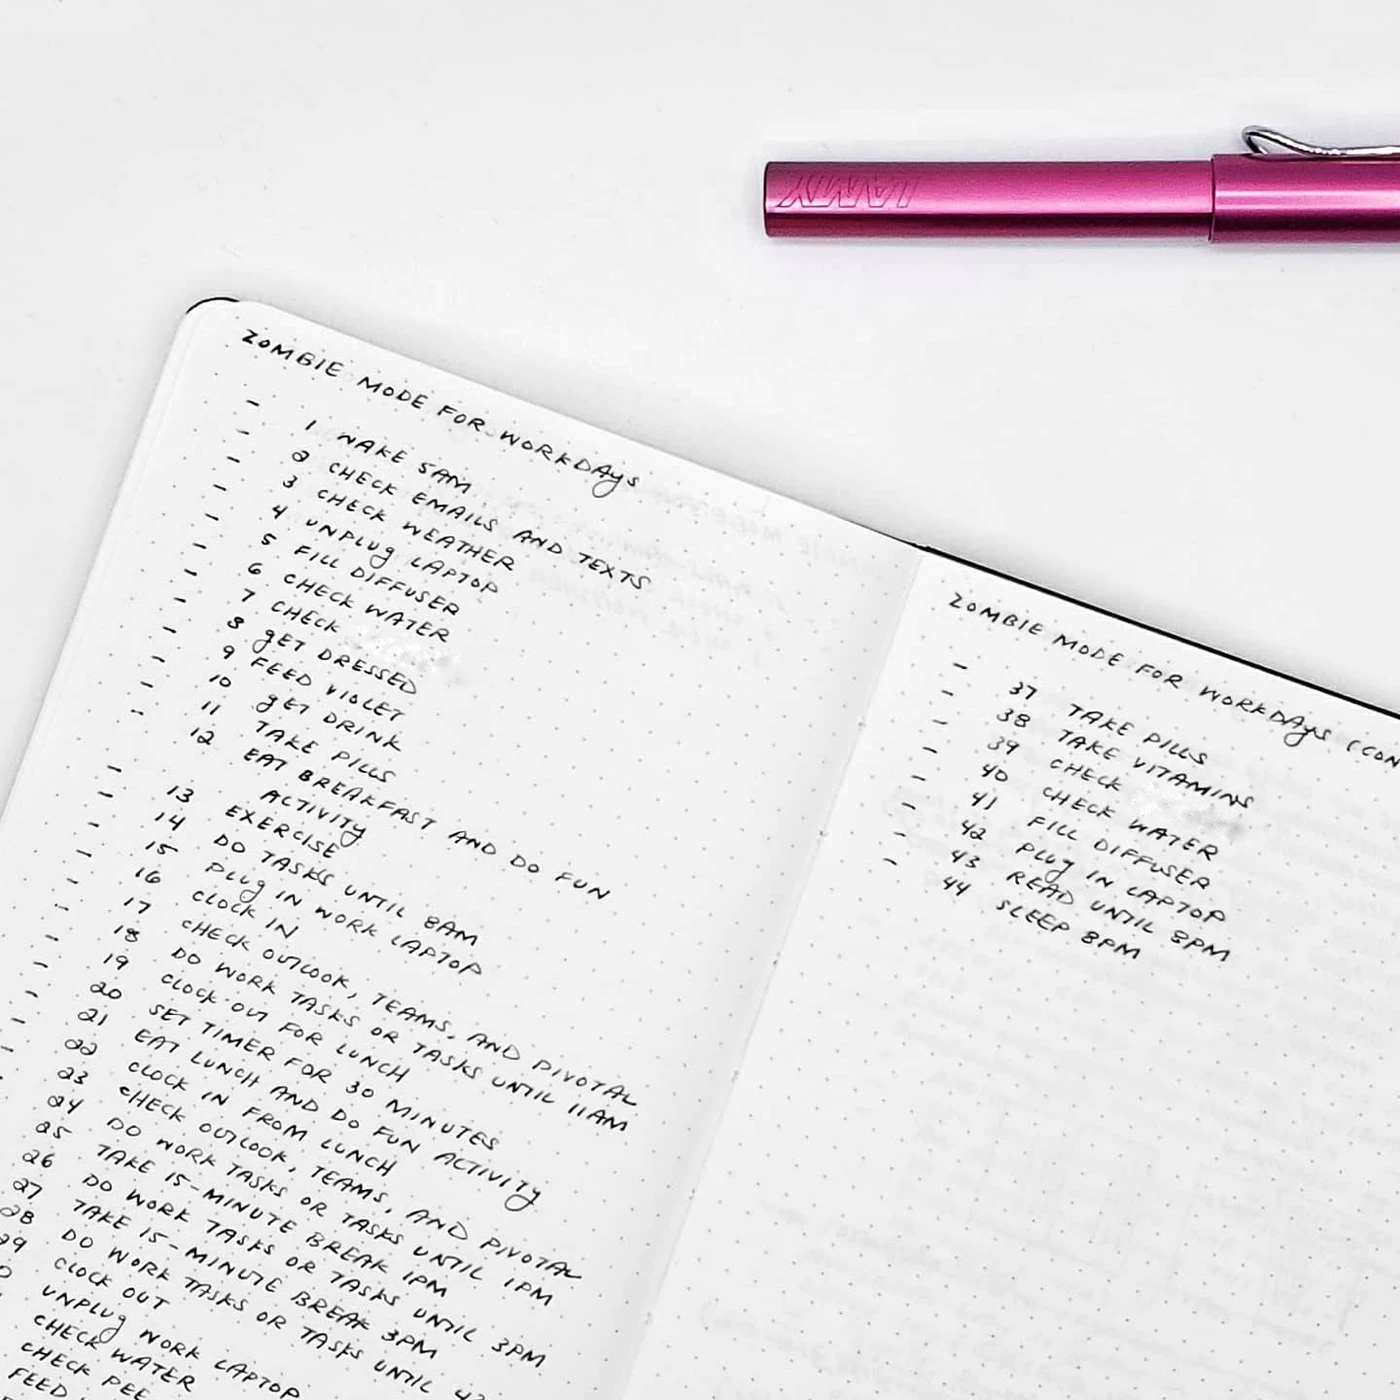 LAMY
ZOMBIE MODE FOR WORKDAYS
- 1 WAKE 5AM
- 2 CHECK EMAILS AND TEXTS
- 3 CHECK WEATHER
- 4 UNPLUG LAPTOP
- 5 FILL DIFFUSER
- 6 CHECK WATER
- 7 CHECK
- 8 GET DRESSED
- 9 FEED VIOLET
- 10 GET DRINK
- 11 TAKE PILLS
- 12 EAT BREAKFAST AND DO FUN
ACTIVITY
- 13 EXERCISE
- 14 DO TASKS UNTIL 8AM
- 15 PLUG IN WORK LAPTOP
- 16 CLOCK IN
- 17 CHECK OUTLOOK, TEAMS, AND PIVOTAL
- 18 DO WORK TASKS OR TASKS UNTIL 11AM
- 19 CLOCK OUT FOR LUNCH
- 20 SET TIMER FOR 30 MINUTES
- 21 EAT LUNCH AND DO FUN ACTIVITY
- 22 CLOCK IN FROM LUNCH
- 23 CHECK OUTLOOK, TEAMS, AND PIVOTAL
24 DO WORK TASKS OR TASKS UNTIL 1PM
25 TAKE 15-MINUTE BREAK 1PM
26 DO WORK TASKS OR TASKS UNTIL 3PM
27 TAKE 15-MINUTE BREAK 3PM
28 DO WORK TASKS OR TASKS UNTIL
29 CLOCK OUT
UNPLUG WORK LAPTOP
CHECK WATER
CHECK PEE
FEED
ZOMBIE MODE FOR WORKDAYS (CON
- 37 TAKE PILLS
- 38 TAKE VITAMINS
- 39 CHECK
- 40 CHECK WATER
- 41 FILL DIFFUSER
- 42 PLUG IN LAPTOP
- 43 READ UNTIL 8PM
- 44 SLEEP 8PM